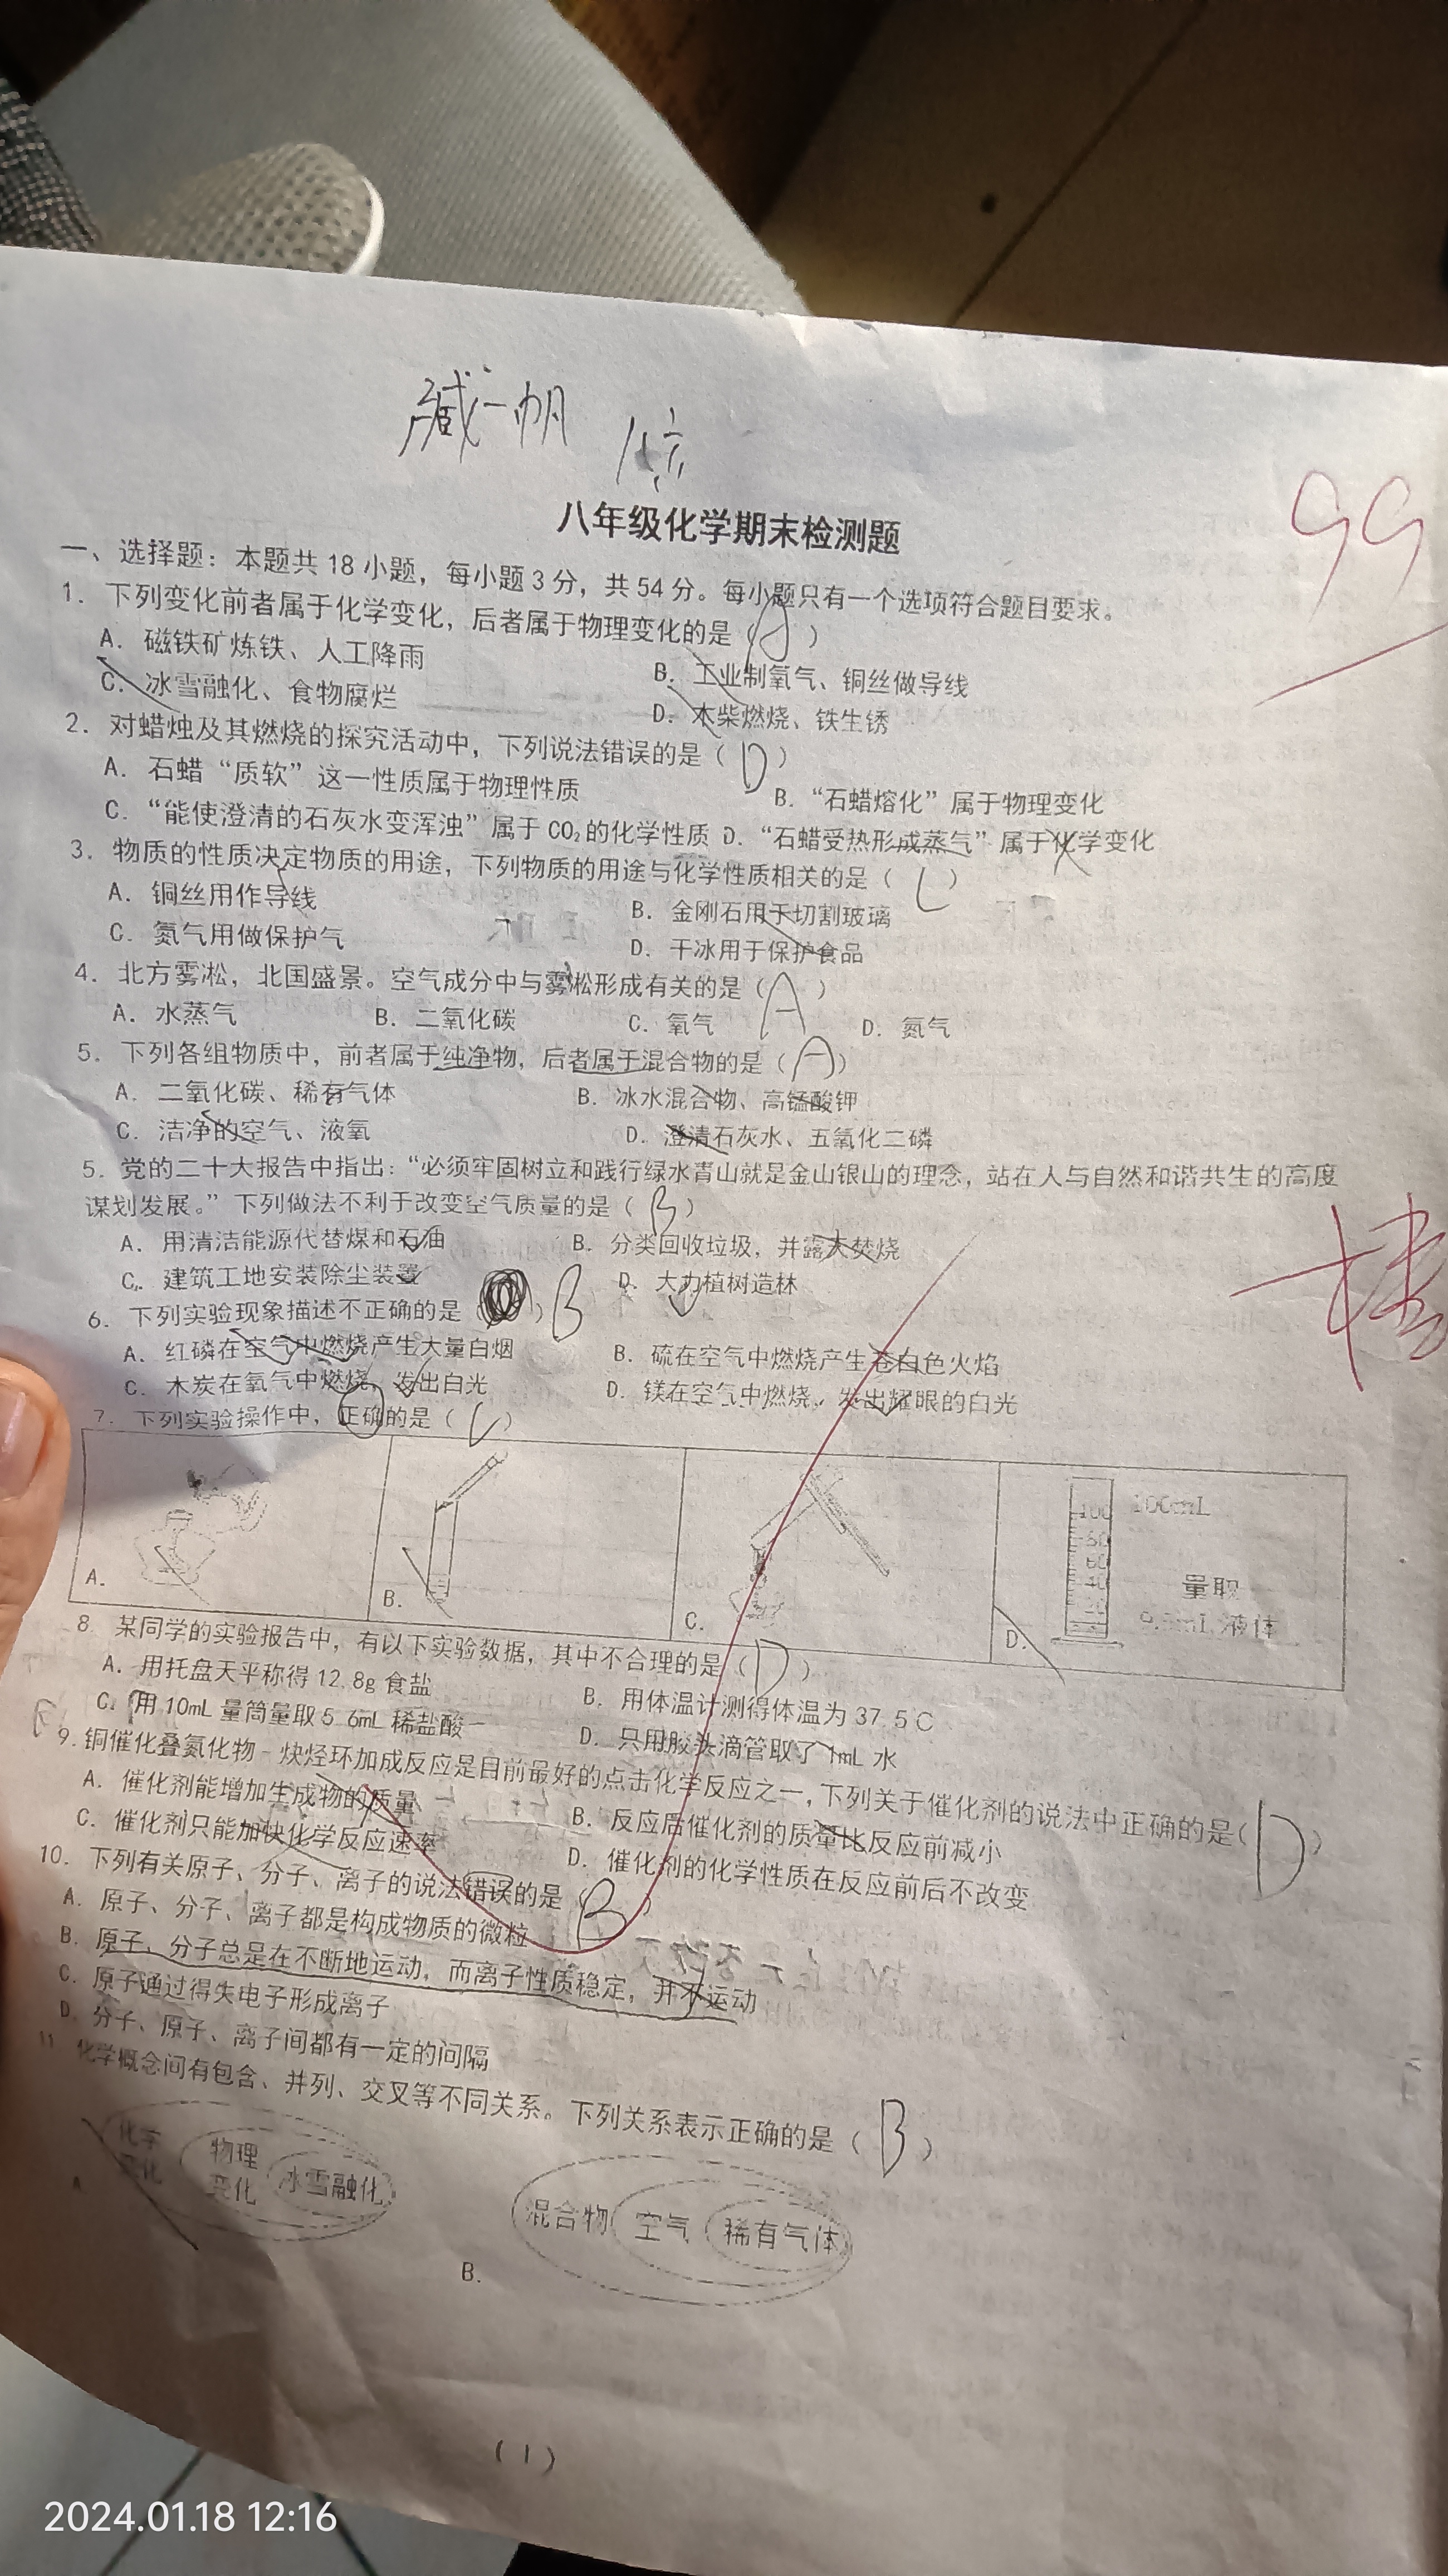 臧一帆
99
八年级化学期末检测题
一、选择题：本题共18小题，每小题3分，共54分。每小题只有一个选项符合题目要求。
1. 下列变化前者属于化学变化，后者属于物理变化的是（A）
A. 磁铁矿炼铁、人工降雨
B. 工业制氧气、铜丝做导线
C. 冰雪融化、食物腐烂
D. 木柴燃烧、铁生锈
2. 对蜡烛及其燃烧的探究活动中，下列说法错误的是（D）
A. 石蜡“质软”这一性质属于物理性质
B. “石蜡熔化”属于物理变化
C. “能使澄清的石灰水变浑浊”属于CO₂的化学性质 D. “石蜡受热形成蒸气”属于化学变化
3. 物质的性质决定物质的用途，下列物质的用途与化学性质相关的是（C）
A. 铜丝用作导线
B. 金刚石用于切割玻璃
C. 氮气用做保护气
D. 干冰用于保护食品
4. 北方雾凇，北国盛景。空气成分中与雾凇形成有关的是（A）
A. 水蒸气 B. 二氧化碳 C. 氧气 D. 氮气
5. 下列各组物质中，前者属于纯净物，后者属于混合物的是（A）
A. 二氧化碳、稀有气体
B. 冰水混合物、高锰酸钾
C. 洁净的空气、液氧
D. 澄清石灰水、五氧化二磷
5. 党的二十大报告中指出：“必须牢固树立和践行绿水青山就是金山银山的理念，站在人与自然和谐共生的高度
谋划发展。”下列做法不利于改变空气质量的是（B）
A. 用清洁能源代替煤和石油
B. 分类回收垃圾，并露天焚烧
C. 建筑工地安装除尘装置
D. 大力植树造林
6. 下列实验现象描述不正确的是（ ）B
A. 红磷在空气中燃烧产生大量白烟
B. 硫在空气中燃烧产生苍白色火焰
C. 木炭在氧气中燃烧，发出白光
D. 镁在空气中燃烧，发出耀眼的白光
7. 下列实验操作中，正确的是（C）
100mL
100
80
60
40
20
量取
液体
A.
B.
C.
D.
8. 某同学的实验报告中，有以下实验数据，其中不合理的是（D）
A. 用托盘天平称得12.8g食盐
B. 用体温计测得体温为37.5℃
C. 用10mL量筒量取5.6mL稀盐酸
D. 只用胶头滴管取了1mL水
9. 铜催化叠氮化物-炔烃环加成反应是目前最好的点击化学反应之一，下列关于催化剂的说法中正确的是（D）
A. 催化剂能增加生成物的质量
B. 反应后催化剂的质量比反应前减小
C. 催化剂只能加快化学反应速率
D. 催化剂的化学性质在反应前后不改变
10. 下列有关原子、分子、离子的说法错误的是（B）
A. 原子、分子、离子都是构成物质的微粒
B. 原子、分子总是在不断地运动，而离子性质稳定，并不运动
C. 原子通过得失电子形成离子
D. 分子、原子、离子间都有一定的间隔
11 化学概念间有包含、并列、交叉等不同关系。下列关系表示正确的是（B）
化学变化 物理变化 冰雪融化
A
混合物 空气 稀有气体
B.
(1)
2024.01.18 12:16